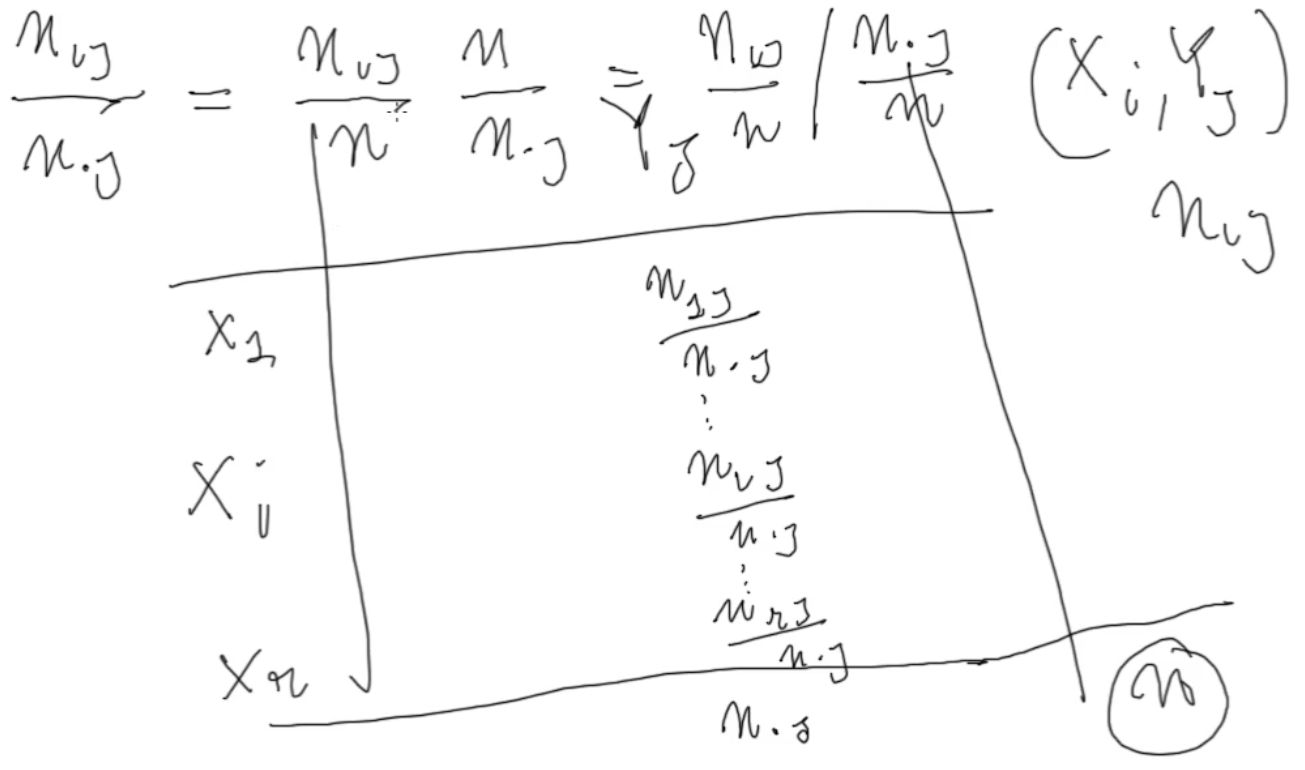 n_{ij}/n_{.j} = n_{ij}/n n/n_{.j} = n_{ij}/n / n_{.j}/n (X_i, Y_j)
Y_j n_{ij}
X_1 n_{1j}/n_{.j}
⋮
X_i n_{ij}/n_{.j}
⋮
X_r n_{rj}/n_{.j}
n_{.j} n